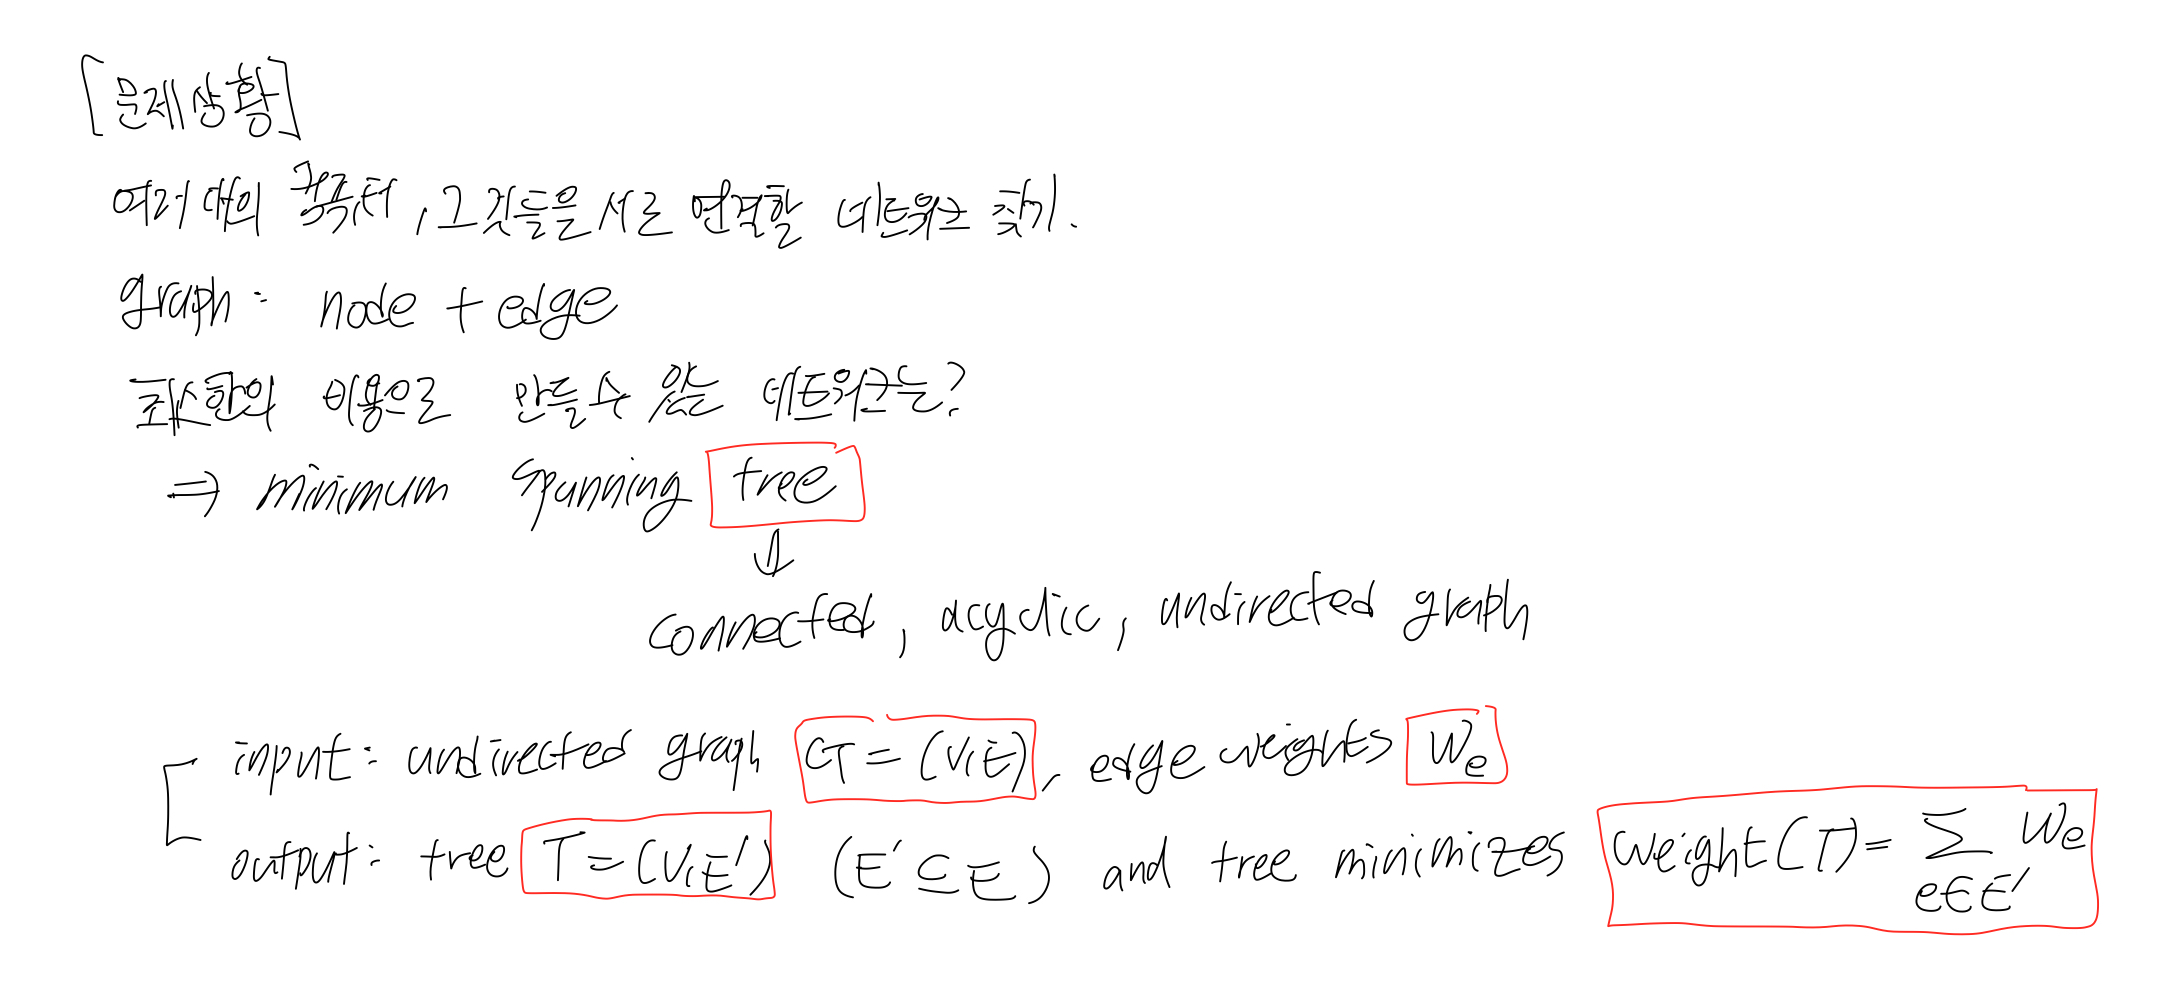 [문제상황]
여러 대의 컴퓨터, 그것들을 서로 연결할 네트워크 찾기.
graph: node + edge
최소한의 비용으로 만들 수 있는 네트워크는?
⇒ minimum spanning tree
↓
connected, acyclic, undirected graph
input: undirected graph G = (V, E), edge weights We
output: tree T = (V, E') (E' ⊆ E) and tree minimizes weight(T) = ∑ We
e∈E'